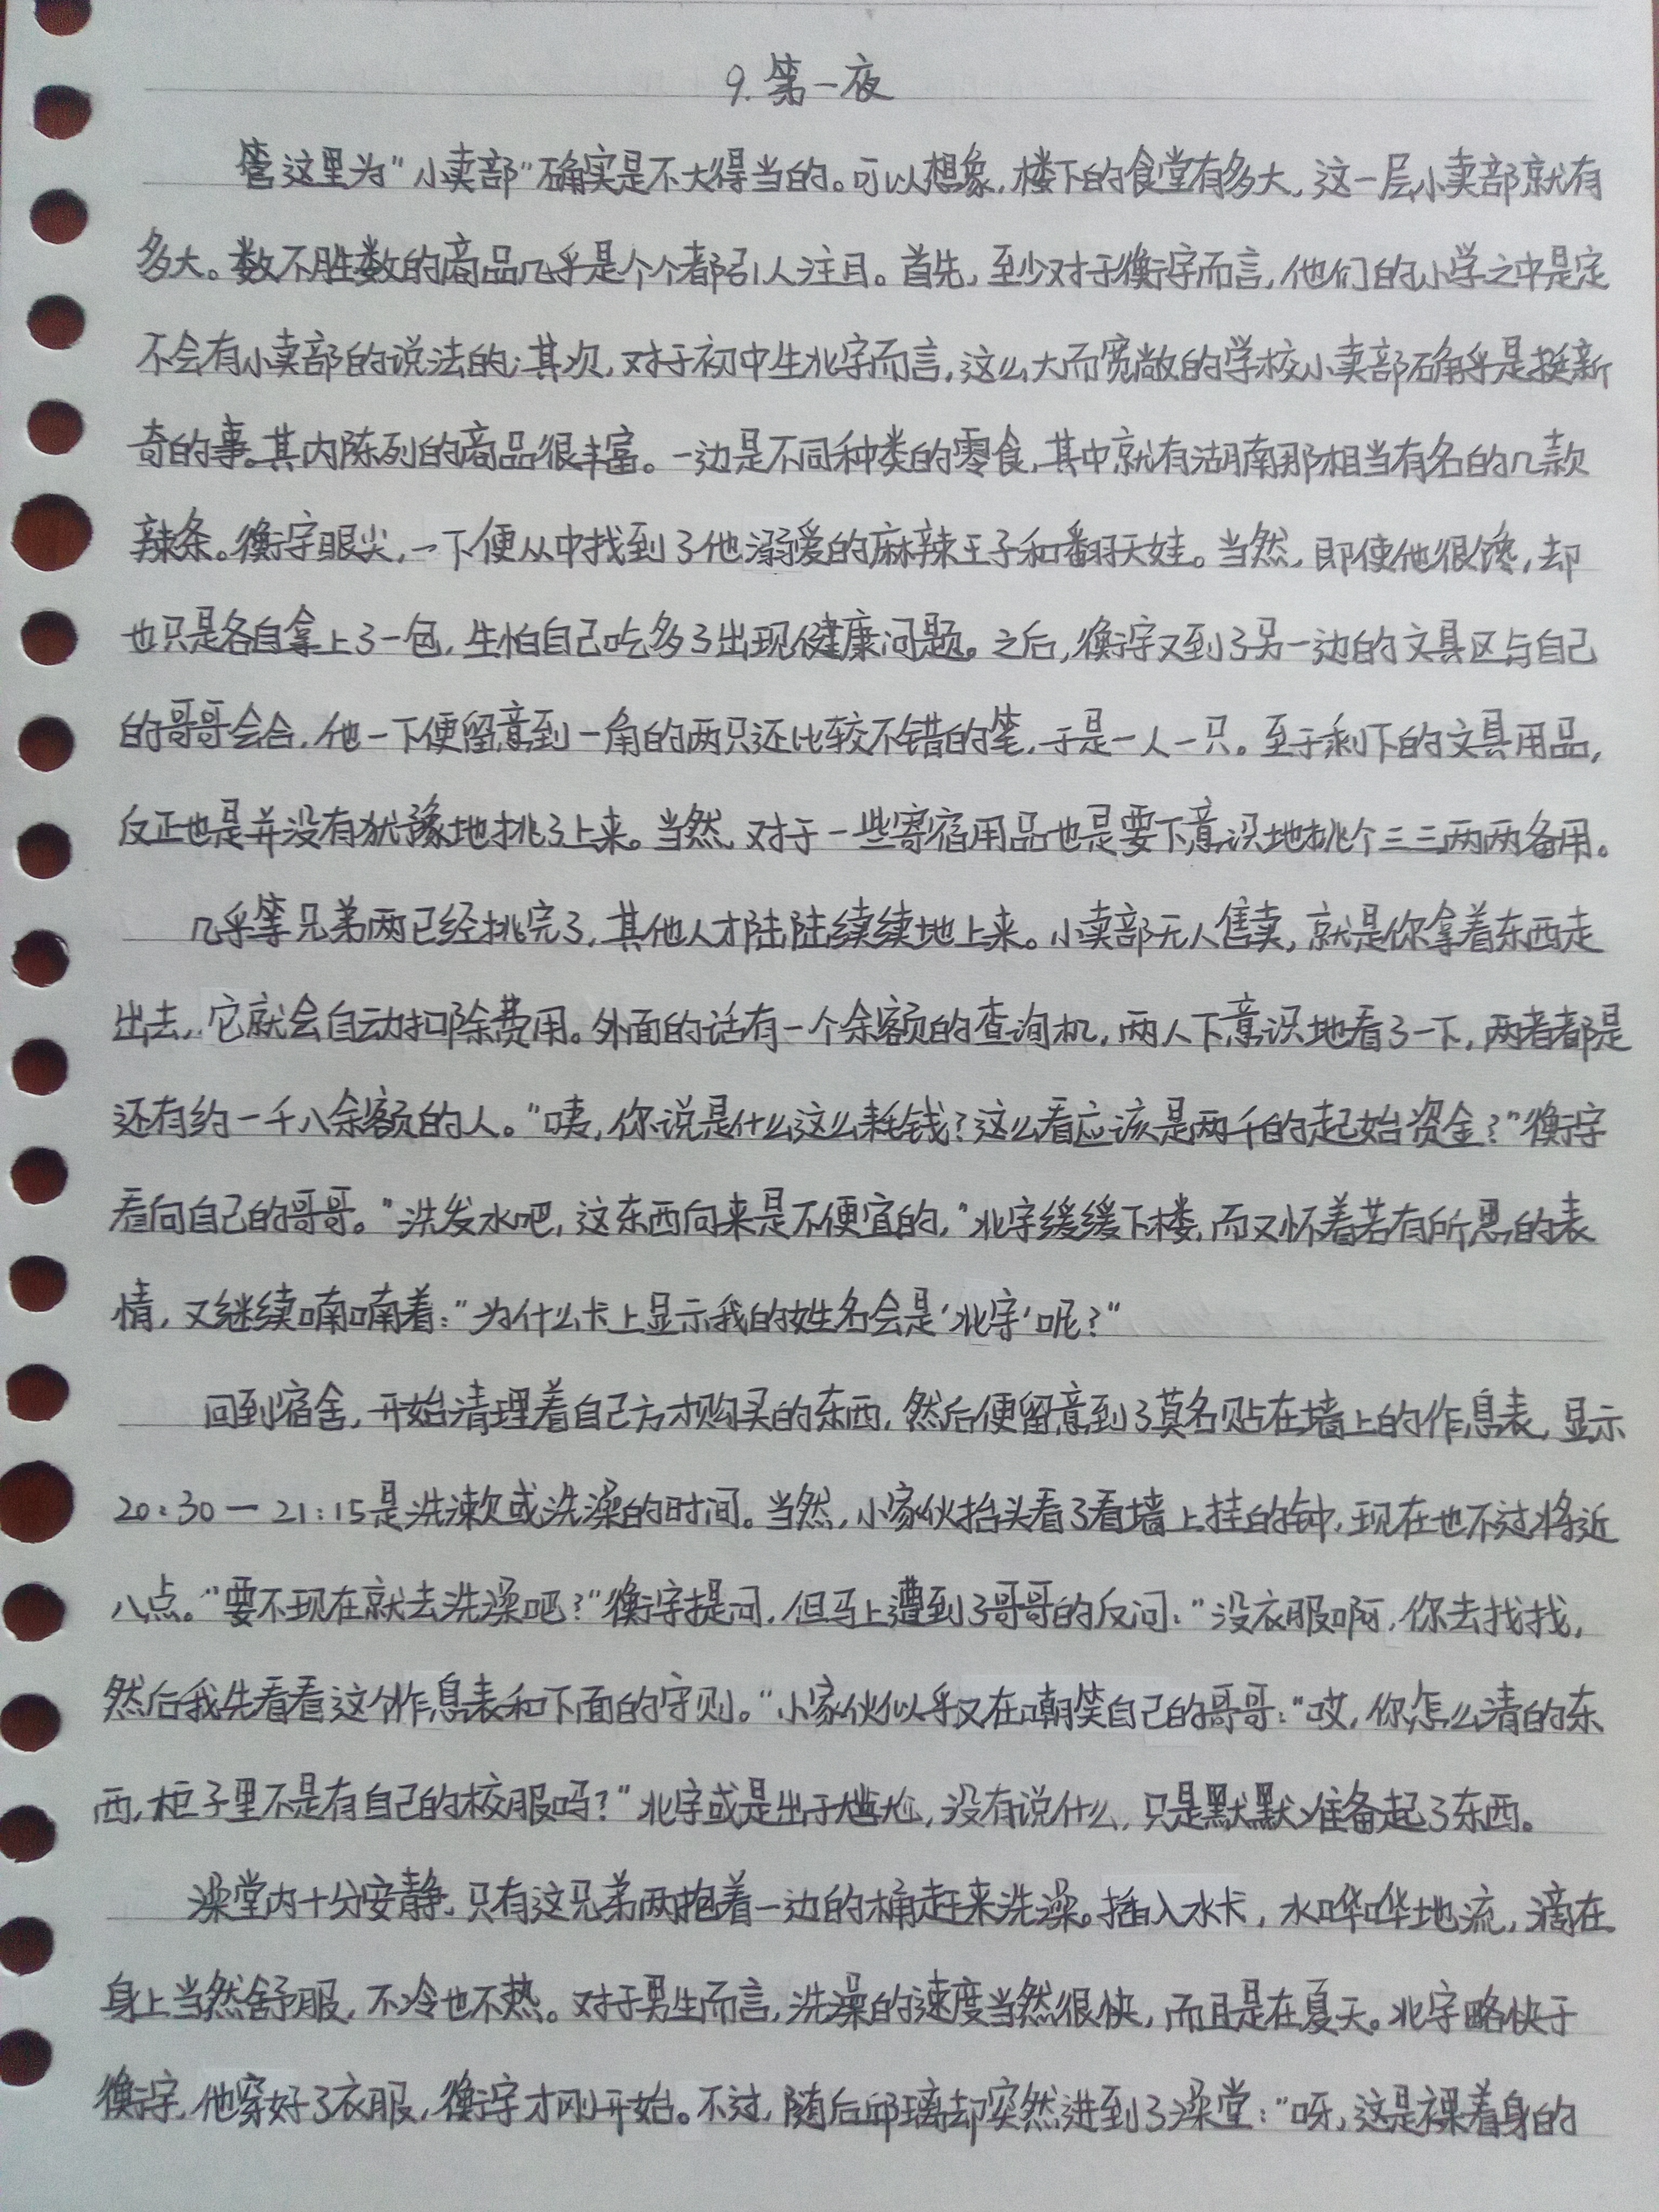 9. 第一夜
管这里为“小卖部”确实是不大得当的。可以想象，楼下的食堂有多大，这一层小卖部就有
多大。数不胜数的商品几乎是个个都引人注目。首先，至少对于衡宇而言，他们的小学之中是定
不会有小卖部的说法的；其次，对于初中生北宇而言，这么大而宽敞的学校小卖部确乎是挺新
奇的事。其内陈列的商品很丰富。一边是不同种类的零食，其中就有湖南那相当有名的几款
辣条。衡宇眼尖，一下便从中找到了他溺爱的麻辣王子和翻天娃。当然，即使他很馋，却
也只是各自拿上了一包，生怕自己吃多了出现健康问题。之后，衡宇又到了另一边的文具区与自己
的哥哥会合，他一下便留意到一角的两只还比较不错的笔，于是一人一只。至于剩下的文具用品，
反正也是并没有犹豫地挑了上来。当然，对于一些寄宿用品也是要下意识地挑个三三两两备用。
几乎等兄弟两已经挑完了，其他人才陆陆续续地上来。小卖部无人售卖，就是你拿着东西走
出去，它就会自动扣除费用。外面的话有一个余额的查询机，两人下意识地看了一下，两者都是
还有约一千八余额的人。“咦，你说是什么这么耗钱？这么看应该是两千的起始资金？”衡宇
看向自己的哥哥。“洗发水吧，这东西向来是不便宜的，”北宇缓缓下楼，而又怀着若有所思的表
情，又继续喃喃着：“为什么卡上显示我的姓名会是‘北宇’呢？”
回到宿舍，开始清理着自己方才购买的东西，然后便留意到了莫名贴在墙上的作息表，显示
20:30—21:15是洗漱或洗澡的时间。当然，小家伙抬头看了看墙上挂的钟，现在也不过将近
八点。“要不现在就去洗澡吧？”衡宇提问，但马上遭到了哥哥的反问：“没衣服啊，你去找找，
然后我先看看这个作息表和下面的守则。”小家伙似乎又在嘲笑自己的哥哥：“哎，你怎么清的东
西，柜子里不是有自己的校服吗？”北宇或是出于尴尬，没有说什么，只是默默准备起了东西。
澡堂内十分安静，只有这兄弟两抱着一边的桶赶来洗澡。插入水卡，水哗哗地流，滴在
身上当然舒服，不冷也不热。对于男生而言，洗澡的速度当然很快，而且是在夏天。北宇略快于
衡宇，他穿好了衣服，衡宇才刚开始。不过，随后邱璃却突然进到了澡堂：“呀，这是裸着身的